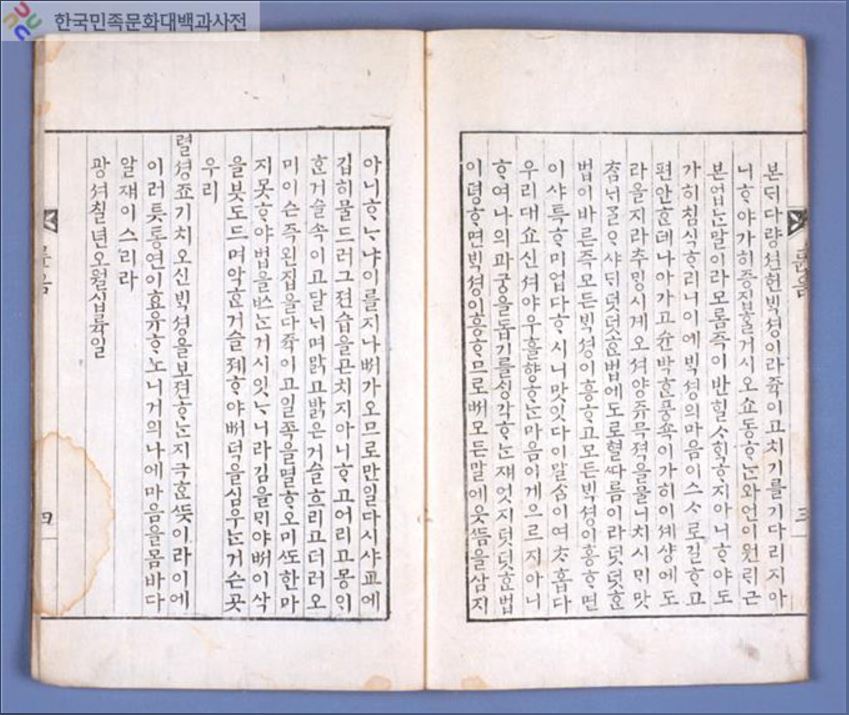 한국민족문화대백과사전
본ᄃᆡ 다량션헌 ᄇᆡᆨ셩이라 쥭이고 치기를 기다리지 아
니ᄒᆞ야 가히 증집ᄒᆞᆯ 거시오 쇼동ᄒᆞᄂᆞᆫ 와언이 원ᄅᆡ 근
본 업ᄂᆞᆫ 말이라 모롬즉이 반힐ᄉᆞᄒᆡᆨᄒᆞ지 아니ᄒᆞ야도
가히 침식ᄒᆞ리니 이에 ᄇᆡᆨ셩의 마음이 스ᄉᆞ로 길ᄒᆞ고
편안ᄒᆞᆫ 데 나아가고 슌박ᄒᆞᆫ 풍속이 가히 이 셰샹에 도
라올지라 추ᄆᆡᆼ시계 오셔 양쥬 무젹을 물니치시ᄆᆡ 맛
ᄎᆞᆷᄂᆡ ᄀᆞᆯᄋᆞ샤ᄃᆡ 덧덧ᄒᆞᆫ 법에 도로혈 ᄯᆞ름이라 덧덧ᄒᆞᆫ
법이 바른즉 모든 ᄇᆡᆨ셩이 흥ᄒᆞ고 모든 ᄇᆡᆨ셩이 흥ᄒᆞ면
이 샤특ᄒᆞ미 업다 ᄒᆞ시니 맛잇다 이 말ᄉᆞᆷ이여 ᄎᆞ홉다
우리 대쇼 신셔야 우흘 향ᄒᆞᄂᆞᆫ 마음이 게으르지 아니
ᄒᆞ여 나의 파궁을 돕기를 ᄉᆡᆼ각ᄒᆞᄂᆞᆫ 쟤 엇지 덧덧ᄒᆞᆫ 법
이 뎡ᄒᆞ면 ᄇᆡᆨ셩이 흥ᄒᆞ므로ᄡᅥ 모든 말에 웃ᄯᅳᆷ을 삼지
아니ᄒᆞᄂᆞ냐 이를 지나ᄡᅥ가 오므로 만일 다시 샤교에
깁히 물드러 그 젼습을 곤치지 아니ᄒᆞ고 어리고 몽ᄆᆡ
ᄒᆞᆫ 거슬 속이고 달ᄂᆡ며 맑고 밝은 거슬 흐리고 더러오
미 이슨즉 왼집을 다 쥭이고 일쪽을 멸ᄒᆞ오미 ᄯᅩ한 마
지 못ᄒᆞ야 법을 ᄡᅳᄂᆞᆫ 거시 잇ᄂᆞ니라 김을 ᄆᆡ야ᄡᅥ 이삭
을 붓도드며 악ᄒᆞᆫ 거슬 졔ᄒᆞ야ᄡᅥ 덕을 심우ᄂᆞᆫ 거슨 곳
우리
렬셩죠 기치오신 ᄇᆡᆨ셩을 보젼ᄒᆞᄂᆞᆫ 지극ᄒᆞᆫ ᄯᅳᆺ이라 이에
이러툿 통연이 효유ᄒᆞ노니 거의 나에 마음을 몸바다
알 쟤 이스리라
광셔 칠년 오월 십륙일
륜음